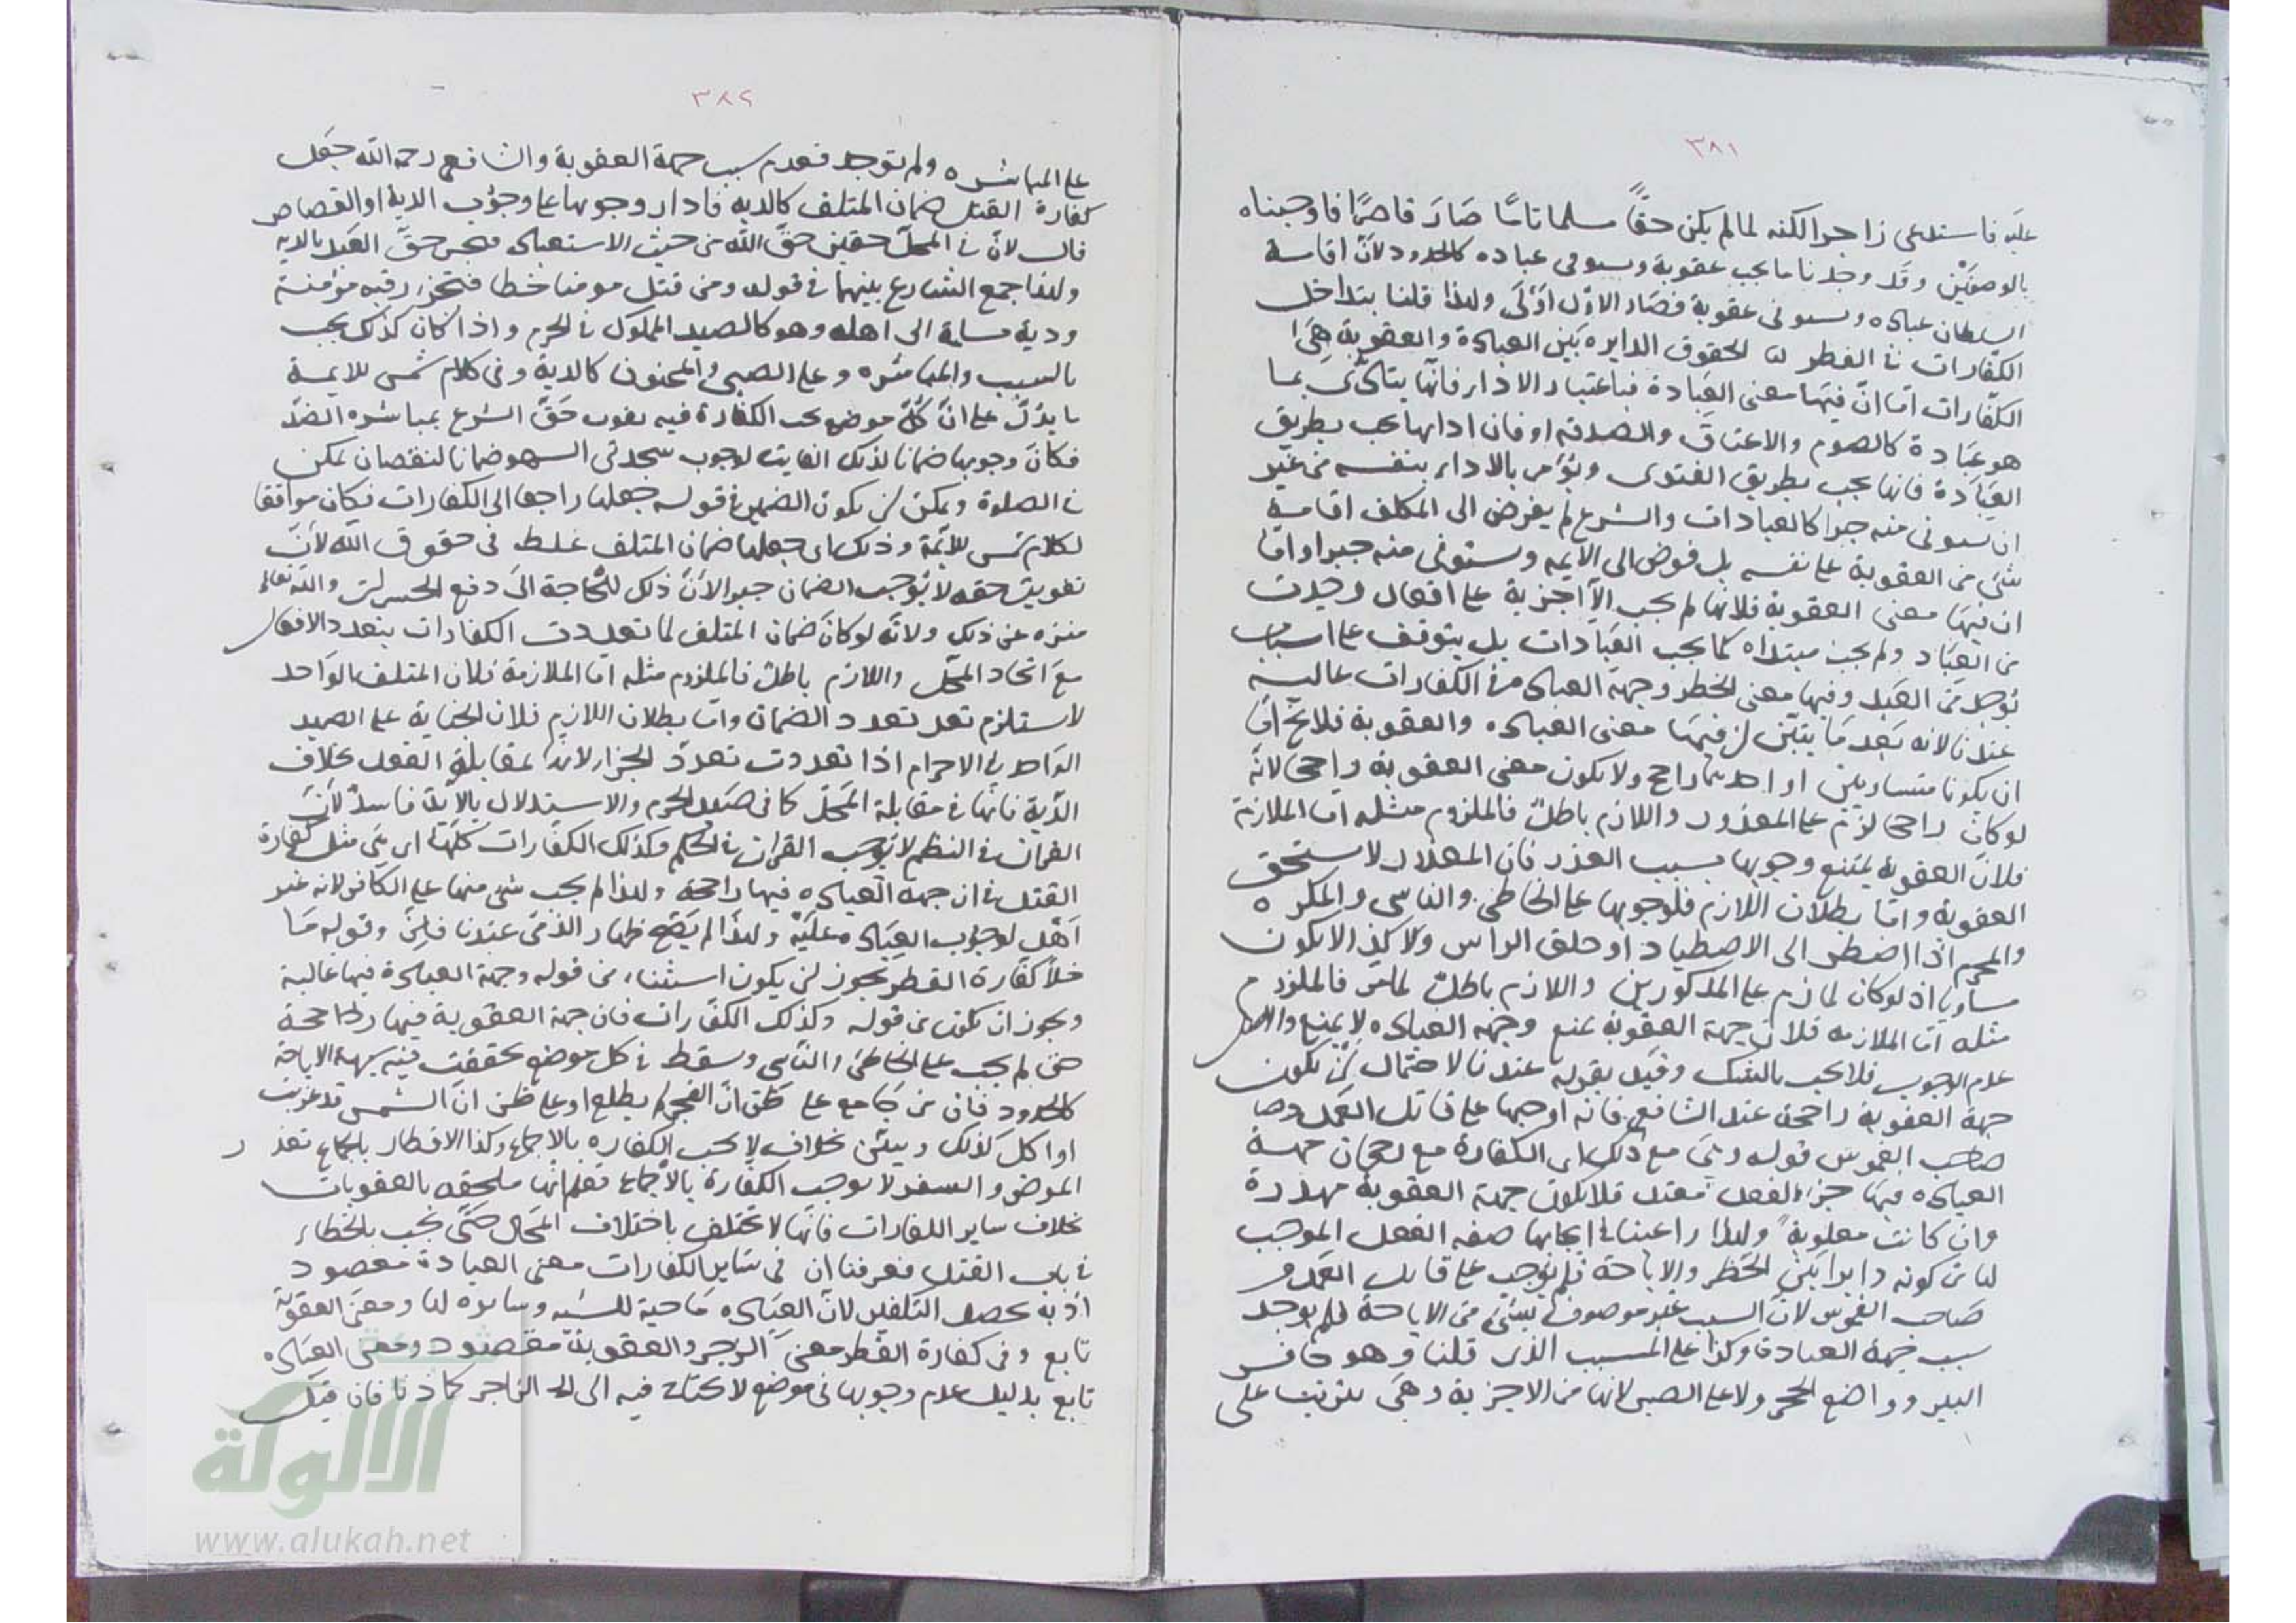 ٣٨١
عليه فاستدعى زاجرا لكنه لما لم يكن حقًّا مسلما تامًّا صَارَ قاصرًا فاوجبناه
بالوصفَيْن وقَد وجدنا ما يجب عقوبة ويستوفى عباده كالحدود لأنّ اقامة
السلطان عباده ويستوفى عقوبة فصَار الاوّل اَوْلَى ولهذا قلنا بتداخل
الكفّارات في الفطر لنا الحقوق الدايره بَيْن العبادة والعقوبة هِىَ
الكفّارات امّا انّ فيهَا معنى العبَادة فباعتبار الاداء فانّها يتادّى بما
هو عبَادة كالصوم والاعتاق والصدقه اوفان اداءها يجب بطريق
العبَادة فانها يجب بطريق الفتوى ويؤمر بالاداء بنفسه من غير
ان يستوفى منه جبرا كالعبادات والشرع لم يفوض الى المكلف اقامة
شئ من العقوبة على نفسه بل فوض الى الايمه ويستوفى منه جبرا واما
ان فيهَا معنى العقوبة فلانها لم يجب الّا اجزية على افعال وجدت
من العبَاد ولم يجب مبتداه كما يجب العبَادات بل يتوقف على اسباب
توجد من العَبد وفيها معنى الحظر وجهة العباده في الكفارات غالبه
عندنا لانه بَعد مَا يتبيّن ان فيهَا معنى العباده والعقوبة فلا يخ امّا
ان يكونا متساويين او احدهما راجح ولا يكون معنى العقوبة راجحا لانّه
لو كان راجحا لزم على المعذور واللازم باطل فالملزوم مثله اما الملازمة
فلان العقوبة يمتنع وجوبها بسبب العذر فان المعذور لا يستحق
العقوبة وامّا بطلان اللازم فلوجوبها على الخاطئ والناسى والمكره
والمحرم اذا اضطر الى الاصطياد او حلق الراس ولا كذا لا يكون
مساويا اذ لو كان لما لزم على المذكورين واللازم باطل لما مَر فالملزوم
مثله امّا الملازمه فلان جهة العقوبة تمنع وجهة العباده لا يمنع والاصل
عدم الوجوب فلا يجب بالشك وقيد بقوله عندنا لاحتمال ان يكون
جهة العقوبة راجحة عند الشافعى فانه اوجبها على قاتل العَمد وصا
صاحب الغموس قوله وهىَ مع ذلك اى الكفارة مع رجحان جهة
العباده فيهَا جزاء الفعل معتد فلا يكون جهة العقوبة مهدرة
وان كانت مغلوبة ولهذا راعينا في ايجابها صفه الفعل الموجب
لها من كونه دايرا بَين الحظر والاباحة فلم نوجب على قاتل العمد و
صَاحب الغموس لان السبب غير موصوف بشىء من الاباحة فلم يوجد
سبب جهة العبادة وكذا على المسبب الذى قلنا وهو حافر
البير وواضع الحجر ولا على الصبى لانها من الاجزية وهىَ يترتب على
٣٨٢
على المباشره ولم توجد فعدم سبب جهة العقوبة والشافعى رحمه الله جعَل
كفارة القتل ضمان المتلف كالديه فادار وجوبها على وجوب الدية او القصاص
قال لانّ في المحلّ حقين حقّ الله من حيث الاستعباد فيجب حقّ العَبد بالديه
ولهذا جمع الشارع بينهما في قوله ومن قتل مومنا خطا فتحرير رقبه مؤمنة
ودية مسلمة الى اهله وهو كالصيد المملوك في الحرم واذا كان كذلك يجب
بالسبب والمباشره وعلى الصبى والمجنون كالدية وفى كلام شمس الايمة
ما يدُلّ على انّ كلّ موضع يجب الكفارة فيه يفوت حَقّ الشرع بمباشره الضدّ
فكانَ وجوبها ضمانا لذلك الفايت لوجوب سجدتى السهو ضمانا لنقصان تمكن
في الصلوة ويمكن ان يكون الضمير في قوله جعلها راجعا الى الكفارات فكان موافقا
لكلام شمس الأيمّة وذلك اى جعلها ضمان المتلف غلط فى حقوق الله لأنّ
تفويت حقه لا يوجب الضمان جبرا لأنّ ذلك للحَاجة الىَ دفع الخسران والله تعالى
منزه عن ذلك ولانّه لو كانَ ضمان المتلف لما تعددت الكفارات بتعدد الافعال
معَ اتحاد المحَلّ واللازم باطل فالملزوم مثله امّا الملازمة فلان المتلف الوَاحد
لا يستلزم تعدد الضمان وامّا بطلان اللازم فلان الجناية على الصيد
الوَاحد في الاحرام اذا تعددت تعددَ الجزاء لانه بمقابلة الفعل بخلاف
الدّية فانّها في مقابلة المَحَلّ كما فى صَيد الحرم والاستدلال بالايَة فاسدٌ لأنّ
القران في النظم لا يوجب القران في الحكم وكذلك الكفّارات كلّها اى هىَ مثل كفارة
القتل في ان جهة العباده فيها راجحة ولهذا لم يجب شئ منها على الكافر لانه غير
اَهْل لوجوب العبَاده عليَه ولهذَا لم يَصح ظهار الذمّى عندنا قلنَ وقوله مَا
خلا كفّارة الفطر يجوز ان يكون استثناء من قوله وجهة العبادة فيها غالبة
ويجوز ان يكون من قوله وكذلك الكفّارات فان جهة العقوبة فيها راجحة
حتّى لم يجب على الخاطئ والنّاسى وسقط في كل موضع تحققت فيه شبهة الاباحة
كالحدود فان من جَامع على ظن انّ الفجر لم يطلع او على ظن انّ الشمس قد غربت
او اكل كذلك وتبيّن بخلافه لا يجب الكفاره بالاجماع وكذا الافطار بالجماع بعذر
المرض والسفر لا يوجب الكفّارة بالاجماع فعلم انّها ملحقه بالعقوبات
بخلاف ساير الكفارات فانّها لا تختلف باختلاف المحَال حتّى تجب بالخطاء
في باب القتل فعرفنا ان فى سَاير الكفارات معنى العبادة مقصود
اذ به يحصل التكفير لانّ العبَاده مَاحية للسيه وساتره لها ومعنَى العقوبَة
تابع وفى كفارة الفطر معنى الزجر والعقوبة مقصود ومعنى العبَاده
تابع بدليل عدم وجوبها فى موضع لا يحتاج فيه الى الزاجر كما ذكرنا فان قيَل
الألوكة
www.alukah.net